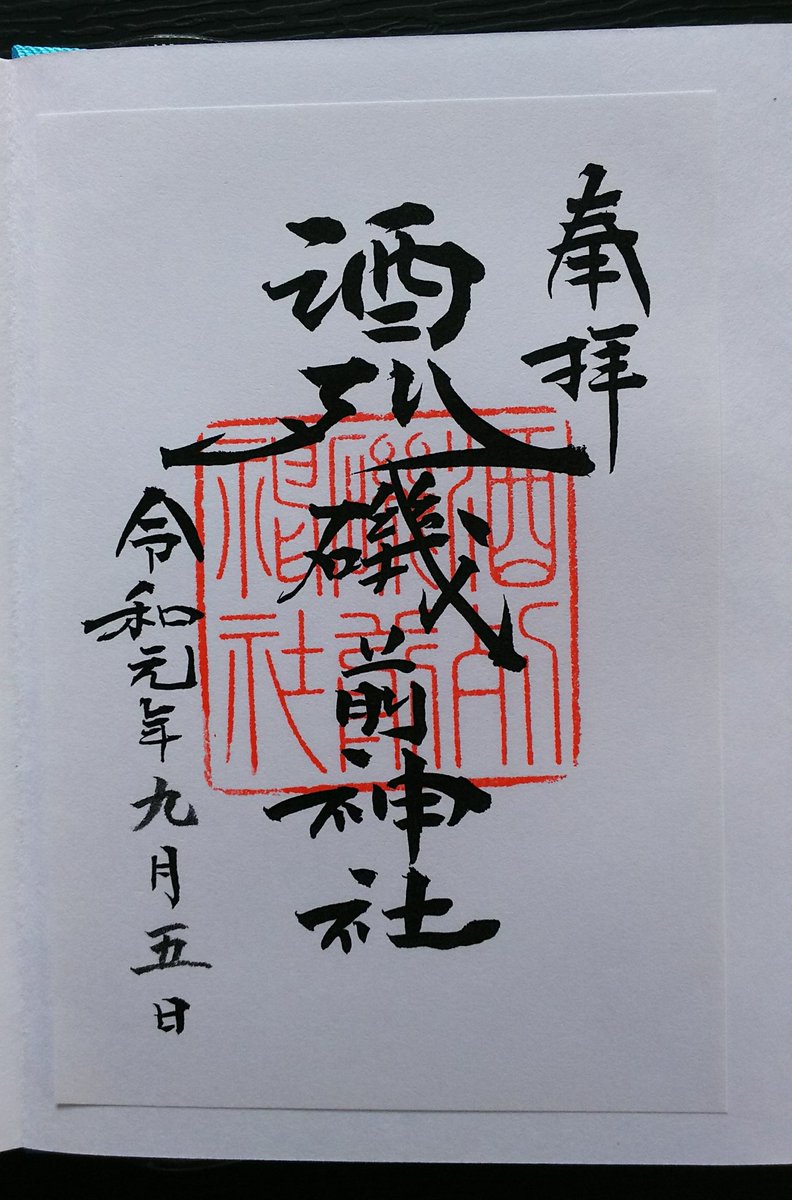 奉拝
酒列磯前神社
令和元年九月五日
酒列
磯前
神社